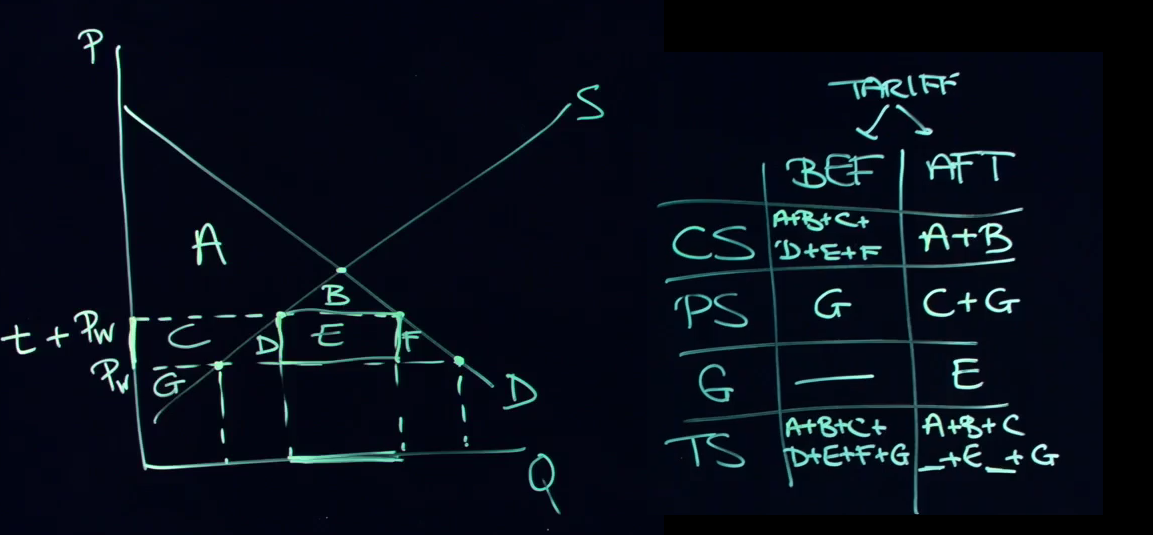 P
S
A
B
t + Pw
C
D
E
F
Pw
G
D
Q
TARIFF
BEF AFT
CS A+B+C+ A+B
D+E+F
PS G C+G
G — E
TS A+B+C+ A+B+C
D+E+F+G _+E_+G